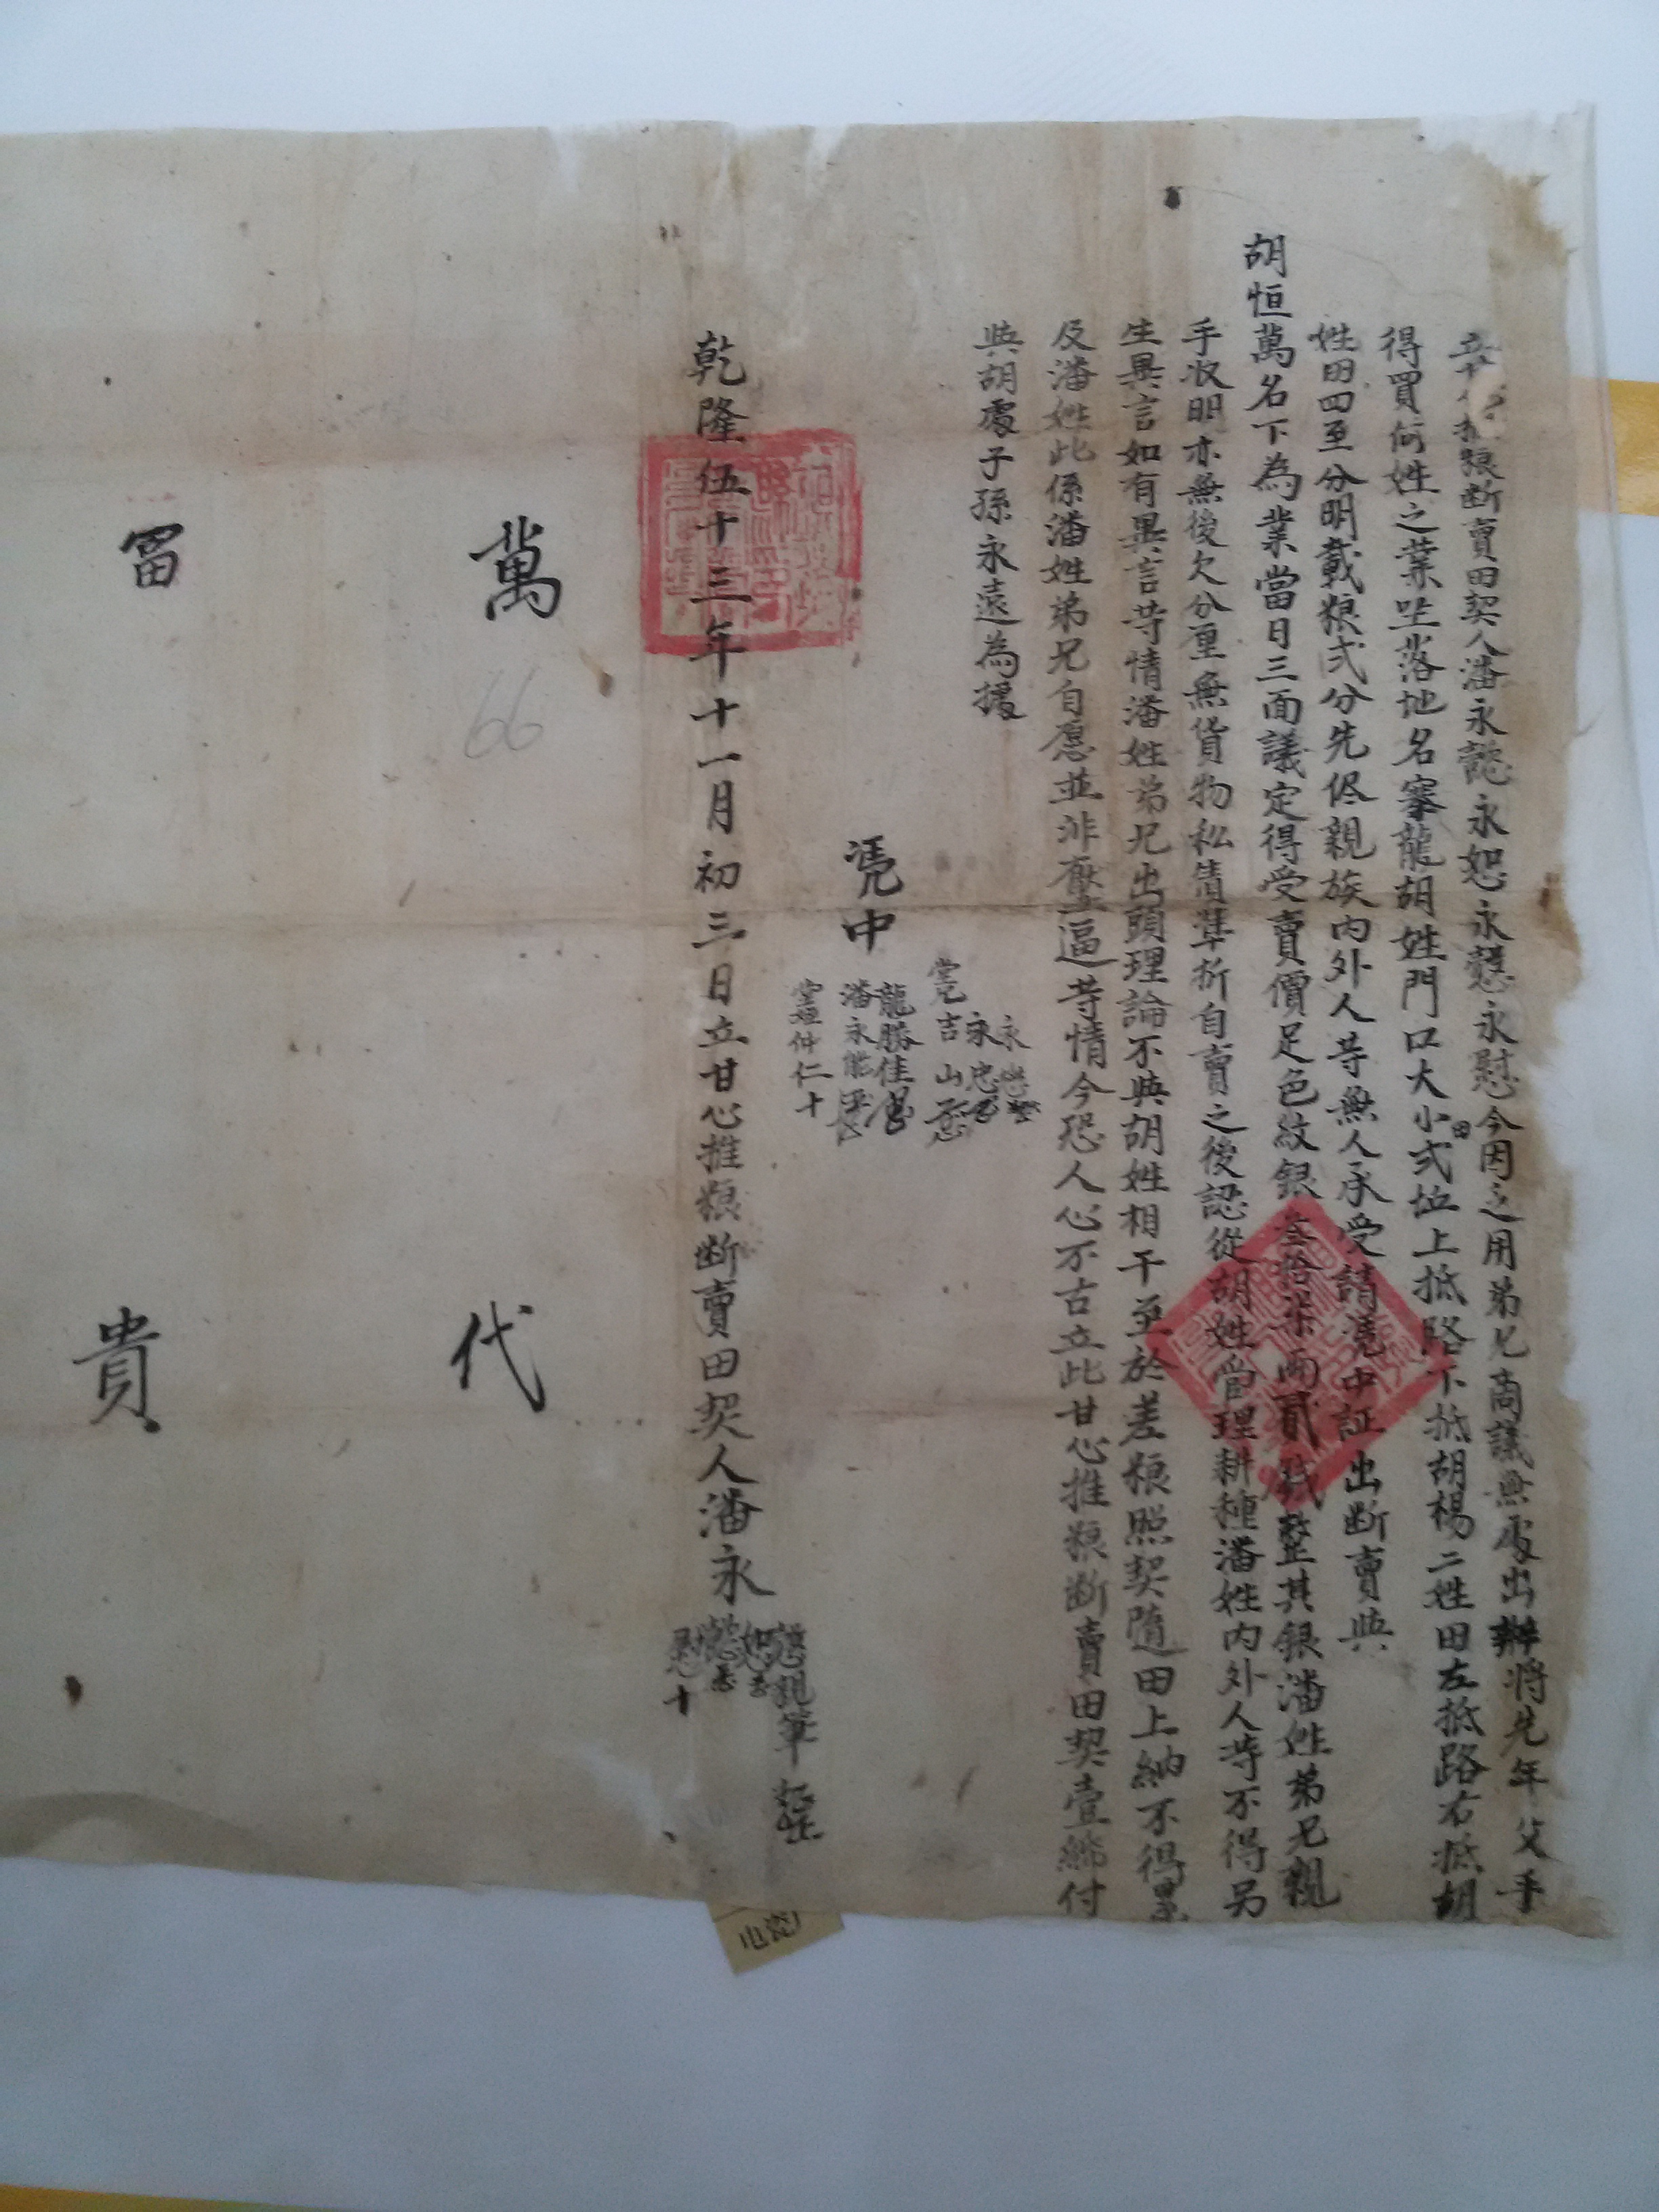 立甘心推粮断賣田契人潘永懿永恕永懿永慰今因乏用弟兄商議無處出辦將先年父手
得買何姓之業坐落地名寨龍胡姓門口大小田弍坵上抵路下抵胡楊二姓田左抵路右抵胡
姓田四至分明載粮弍分先侭親族内外人等無人承受請憑中証出断賣與
胡恒萬名下為業當日三面議定得受賣價足色紋銀叁拾柒両貳錢整其銀潘姓弟兄親
手收明亦無後欠分厘無貨物私債準折自賣之後認從胡姓管理耕種潘姓内外人等不得另
生異言如有異言等情潘姓弟兄出頭理論不與胡姓相干至於差粮照契隨田上納不得累
及潘姓此係潘姓弟兄自愿並非壓逼等情今恐人心不古立此甘心推粮断賣田契壹紙付
與胡處子孫永遠為援
永
永忠
堂兄吉山
憑中
龍勝佳
潘永能
堂姪仲仁十
乾隆伍十三年十一月初三日立甘心推粮断賣田契人潘永
親筆
恕
慰十
萬代
冨貴
66